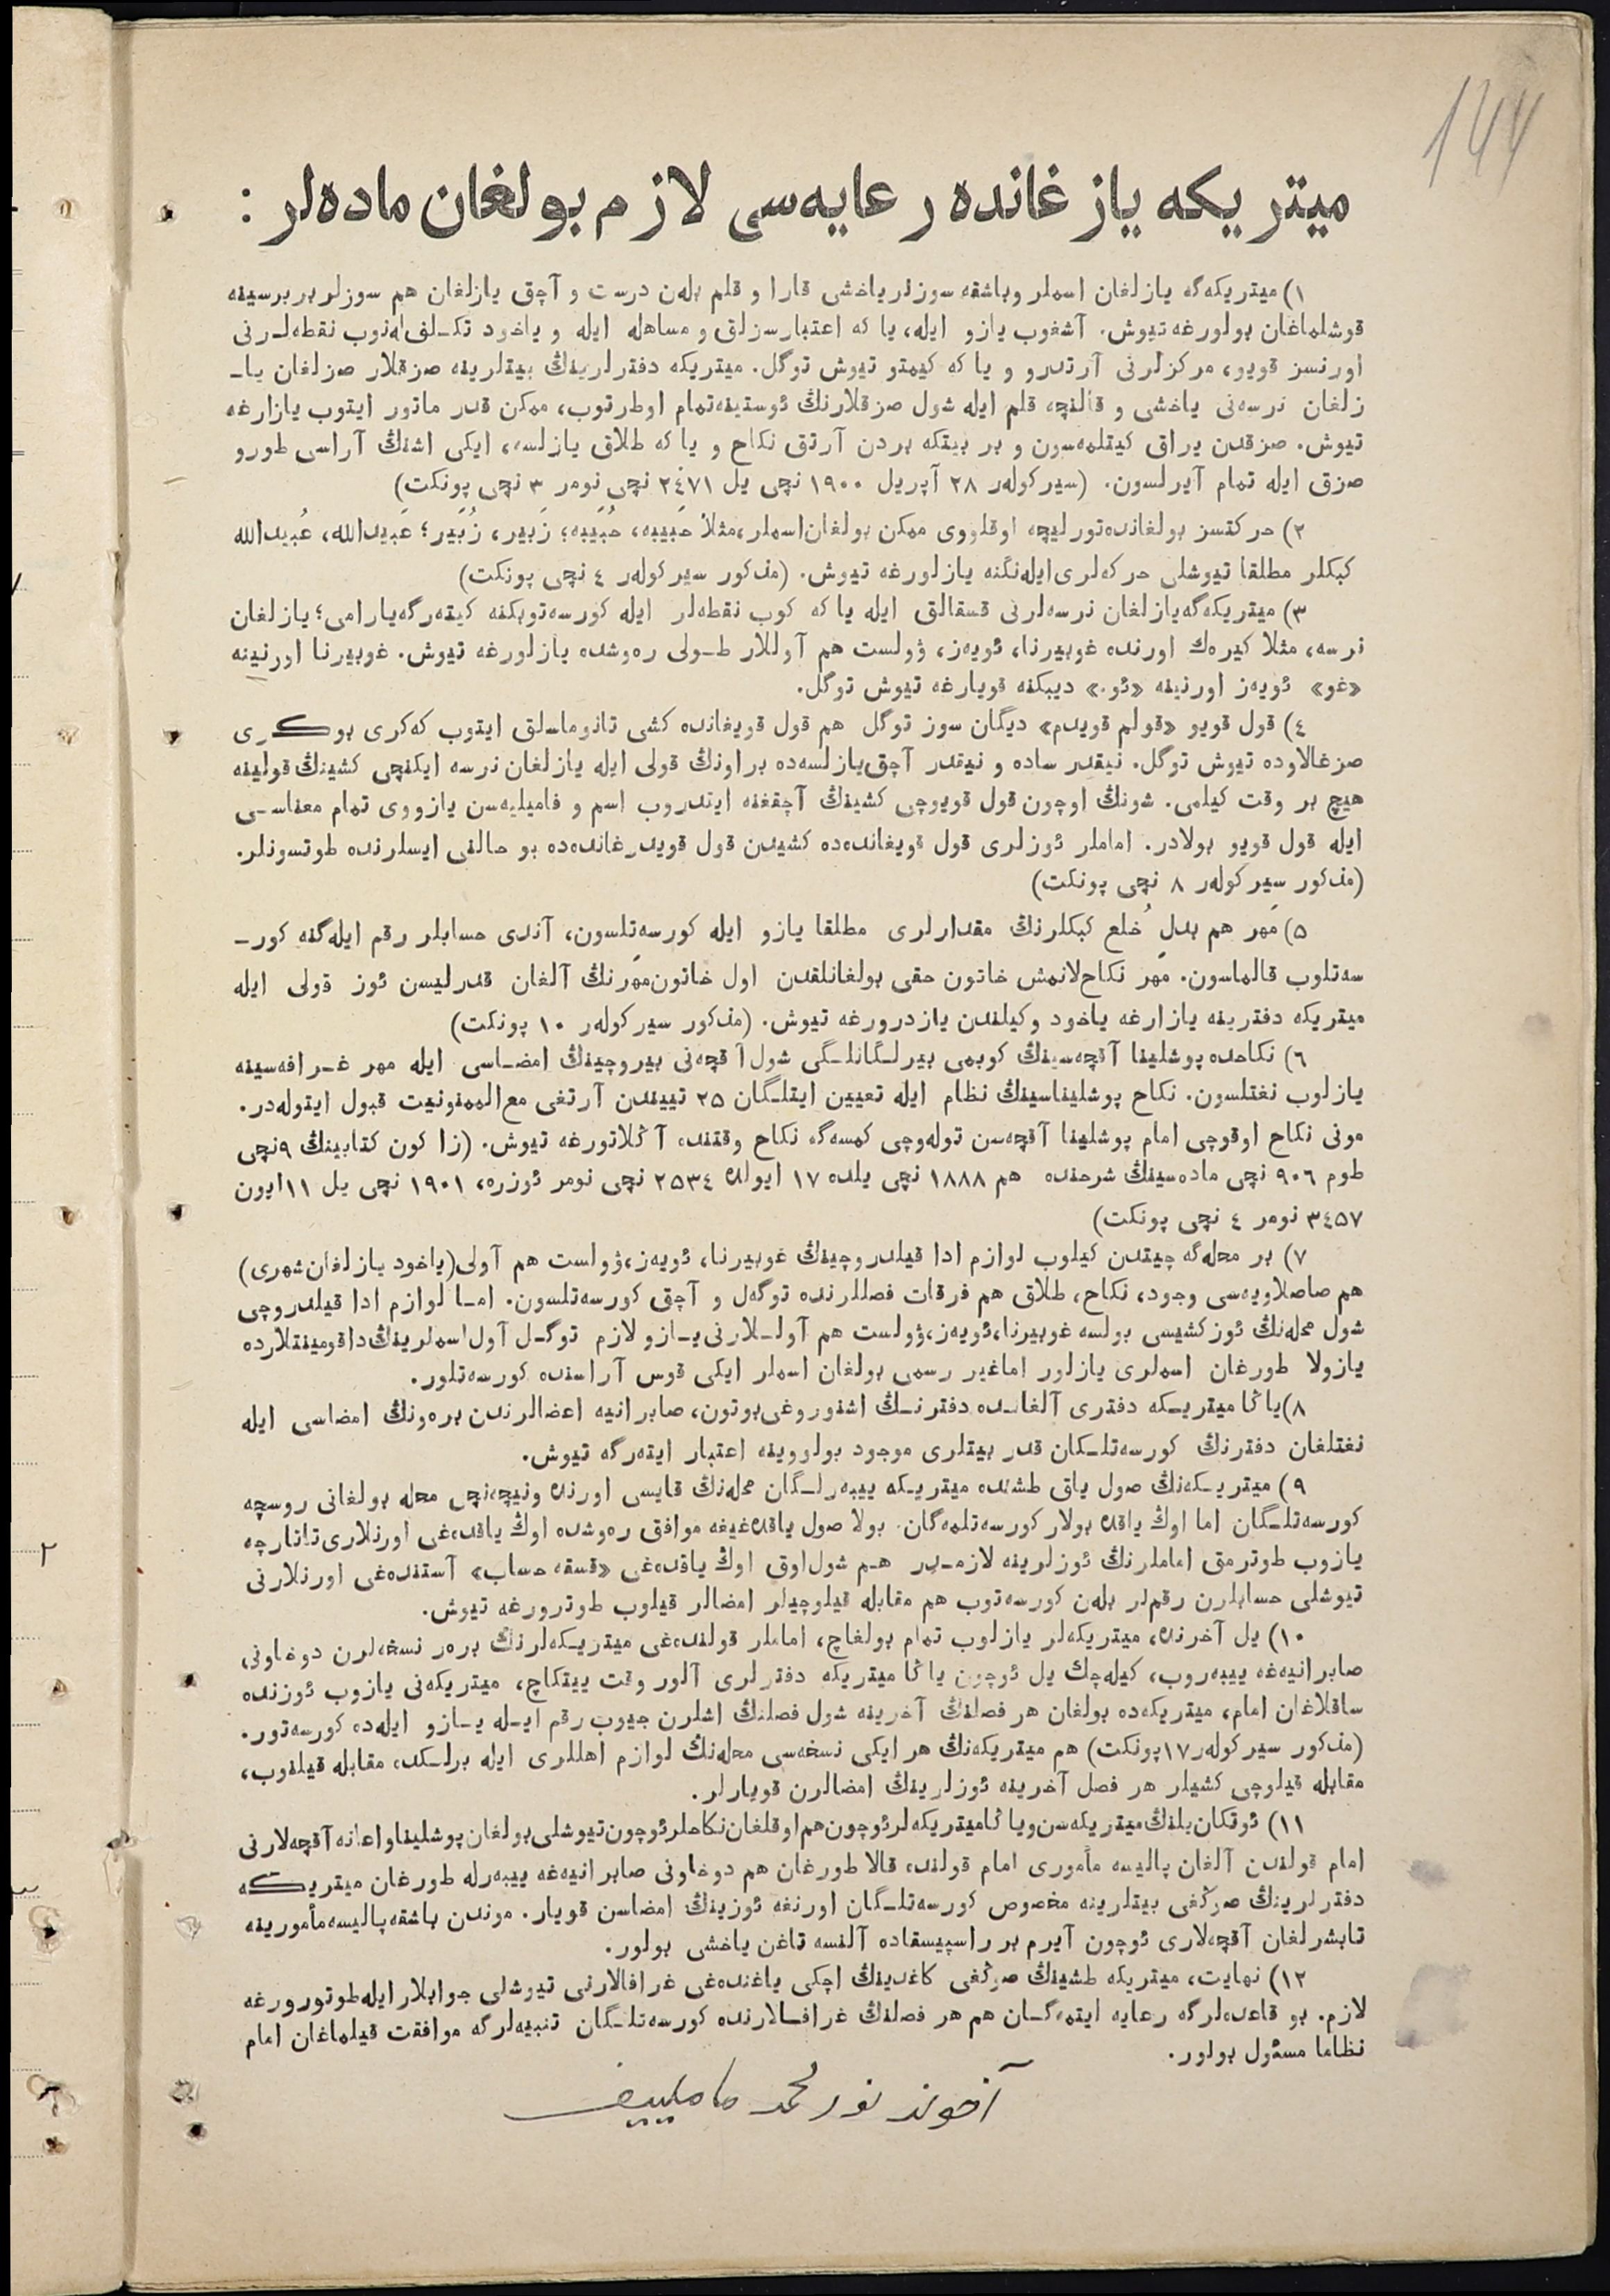 144
ميتريكه يازغانده رعايه‌سى لازم بولغان ماده‌لر :
١) ميتريكه‌گه يازلغان اسملر وباشقه سوزلر ياخشى قارا و قلم بله‌ن درست و آچق يازلغان هم سوزلر بربرسينه
قوشلماغان بولورغه تيوش. آشغوب يازو ايله، يا كه اعتبارسزلق و مساهله ايله و ياخود تكلف‌له‌نوب نقطه‌لرنى
اورنسز قويو، مركزلرنى آرتدرو و يا كه كيمتو تيوش توگل. ميتريكه دفترلرينڭ بيتلرينه صزقلار صزلغان يا‌ـ
زلغان نرسه‌نى ياخشى و قالنچه قلم ايله شول صزقلارنڭ ئوستينه‌تمام اوطرتوب، ممكن قدر ماتور ايتوب يازارغه
تيوش. صزقدن يراق كيتلمه‌سون و بر بيتكه بردن آرتق نكاح و يا كه طلاق يازلسه، ايكى اشنڭ آراسى طورو
صزق ايله تمام آيرلسون. (سيركولەر ٢٨ آپريل ١٩٠٠ نچى يل ٢٤٧١ نچى نومر ٣ نچى پونكت)
٢) حركتسز بولغانده‌تورليچه اوقلووى ممكن بولغان‌اسملر،مثلا حَبيبه، حُبَيبه؛ زَبير، زُبَير؛ عَبيدالله، عُبيدالله
كبكلر مطلقا تيوشلى حركه‌لرى‌ايله‌نگنه يازلورغه تيوش. (مذكور سيركولەر ٤ نچى پونكت)
٣) ميتريكه‌گه‌يازلغان نرسه‌لرنى قسقالق ايله يا كه كوب نقطه‌لر ايله كورسه‌توبكنه كيته‌رگه‌يارامى؛ يازلغان
نرسه، مثلا كيره‌ك اورنده غوبيرنا، ئويه‌ز، ۋولست هم آوللار طولى ره‌وشده يازلورغه تيوش. غوبيرنا اورنينه
«غو» ئويه‌ز اورنينه «ئو.» ديبكنه قويارغه تيوش توگل.
٤) قول قويو «قولم قويدم» ديگان سوز توگل هم قول قويغانده كشى تانوماسلق ايتوب كه‌كرى بوكرى
صزغالاوده تيوش توگل. نيقدر ساده و نيقدر آچق‌يازلسه‌ده براونڭ قولى ايله يازلغان نرسه ايكنچى كشينڭ قولينه
هيچ بر وقت كيلمى. شونڭ اوچون قول قويوچى كشينڭ آچقغنه ايتدروب اسم و فاميليه‌سن يازووى تمام معناسى
ايله قول قويو بولادر. اماملر ئوزلرى قول قويغانده‌ده كشيدن قول قويدرغانده‌ده بو حالنى ايسلرنده طوتسونلر.
(مذكور سيركولەر ٨ نچى پونكت)
٥) مَهر هم بدلِ خُلع كبكلرنڭ مقدارلرى مطلقا يازو ايله كورسه‌تلسون، آندى حسابلر رقم ايله‌گنه كورـ
سه‌تلوب قالماسون. مَهر نكاح‌لانمش خاتون حقى بولغانلقدن اول خاتون‌مَهرنڭ آلغان قدرليسن ئوز قولى ايله
ميتريكه دفترينه يازارغه ياخود وكيلندن يازدرورغه تيوش. (مذكور سيركولەر ١٠ پونكت)
٦) نكاحده پوشلينا آقچه‌سينڭ كوبمى بيرلگانلگى شول آقچه‌نى بيروچينڭ امضاسى ايله مهر غرافه‌سينه
يازلوب نغتلسون. نكاح پوشليناسينڭ نظام ايله تعيين ايتلگان ٢٥ تييندن آرتغى مع‌الممنونيت قبول ايتوله‌در.
مونى نكاح اوقوچى امام پوشلينا آقچه‌سن توله‌وچى كمسه‌گه نكاح وقتنده آڭلاتورغه تيوش. (زاكون كتابينڭ ٩نچى
طوم ٩٠٦ نچى ماده‌سينڭ شرحنده هم ١٨٨٨ نچى يلده ١٧ ايولده ٢٥٣٤ نچى نومر ئوزره، ١٩٠١ نچى يل ١١ايون
٣٤٥٧ نومر ٤ نچى پونكت)
٧) بر محله‌گه چيتدن كيلوب لوازم ادا قيلدروچينڭ غوبيرنا، ئويه‌ز،ۋولست هم آولى(ياخود يازلغان‌شهرى)
هم صاصلاويه‌سى وجود، نكاح، طلاق هم فرقات فصللرنده توگه‌ل و آچق كورسه‌تلسون. اما لوازم ادا قيلدروچى
شول محله‌نڭ ئوزكشيسى بولسه غوبيرنا،ئويه‌ز،ۋولست هم آوللارنى يازو لازم توگل آول‌اسملرينڭ‌داقومينتلارده
يازولا طورغان اسملرى يازلور اماغير رسمى بولغان اسملر ايكى قوس آراسنده كورسه‌تلور.
٨)ياڭا ميتريكه دفترى آلغانده دفترنڭ اشنوروغى‌بوتون، صابرانيه اعضالرندن بره‌ونڭ امضاسى ايله
نغتلغان دفترنڭ كورسه‌تلكان قدر بيتلرى موجود بولووينه اعتبار ايته‌رگه تيوش.
٩) ميتريكه‌نڭ صول ياق طشنده ميتريكه ييبه‌رلگان محله‌نڭ قايسى اورنده ونيچه‌نچى محله بولغانى روسچه
كورسه‌تلگان اما اوڭ ياقده بولار كورسه‌تلمه‌گان. بولا صول ياقده‌غيغه موافق ره‌وشده اوڭ ياقده‌غى اورنلارى‌تاتارچه
يازوب طوترمق اماملرنڭ ئوزلرينه لازمدر هم شول‌اوق اوڭ ياقده‌غى «قسقه حساب» آستنده‌غى اورنلارنى
تيوشلى حسابلرن رقم‌لر بله‌ن كورسه‌توب هم مقابله قيلوچيلر امضالر قيلوب طوترورغه تيوش.
١٠) يل آخرنده، ميتريكه‌لر يازلوب تمام بولغاچ، اماملر قولنده‌غى ميتريكه‌لرنڭ بره‌ر نسخه‌لرن دوخاونى
صابرانيه‌غه ييبه‌روب، كيله‌چك يل ئوچون ياڭا ميتريكه دفترلرى آلور وقت ييتكاچ، ميتريكه‌نى يازوب ئوزنده
ساقلاغان امام، ميتريكه‌ده بولغان هر فصلنڭ آخرينه شول فصلنڭ اشلرن جيوب رقم ايله يازو ايله‌ده كورسه‌تور.
(مذكور سيركولەر١٧پونكت) هم ميتريكه‌نڭ هر ايكى نسخه‌سى محله‌نڭ لوازم اهللرى ايله برلكده مقابله قيلنوب،
مقابله قيلوچى كشيلر هر فصل آخرينه ئوزلرينڭ امضالرن قويارلر.
١١) ئوتكان‌يلنڭ‌ميتريكه‌سن‌وياڭاميتريكه‌لرئوچون‌هم‌اوقلغان‌نكاحلرئوچون‌تيوشلى‌بولغان‌پوشليناواعانه‌آقچه‌لارنى
امام قولندن آلغان پاليسه مأمورى امام قولنده قالا طورغان هم دوخاونى صابرانيه‌غه ييبه‌رله طورغان ميتريكه
دفترلرينڭ صوڭغى بيتلرينه مخصوص كورسه‌تلگان اورنغه ئوزينڭ امضاسن قويار. موندن باشقه‌پاليسه‌مأمورينه
تابشرلغان آقچه‌لارى ئوچون آيرم بر راسپيسقاده آلنسه تاغن ياخشى بولور.
١٢) نهايت، ميتريكه طشينڭ صوڭغى كاغدينڭ اچكى ياغنده‌غى غرافالارنى تيوشلى جوابلار ايله‌طوتورورغه
لازم. بو قاعده‌لرگه رعايه ايتمه‌گان هم هر فصلنڭ غرافالارنده كورسه‌تلگان تنبيه‌لرگه موافقت قيلماغان امام
نظاما مسئول بولور.
آخوند نورمحمد ماملييف